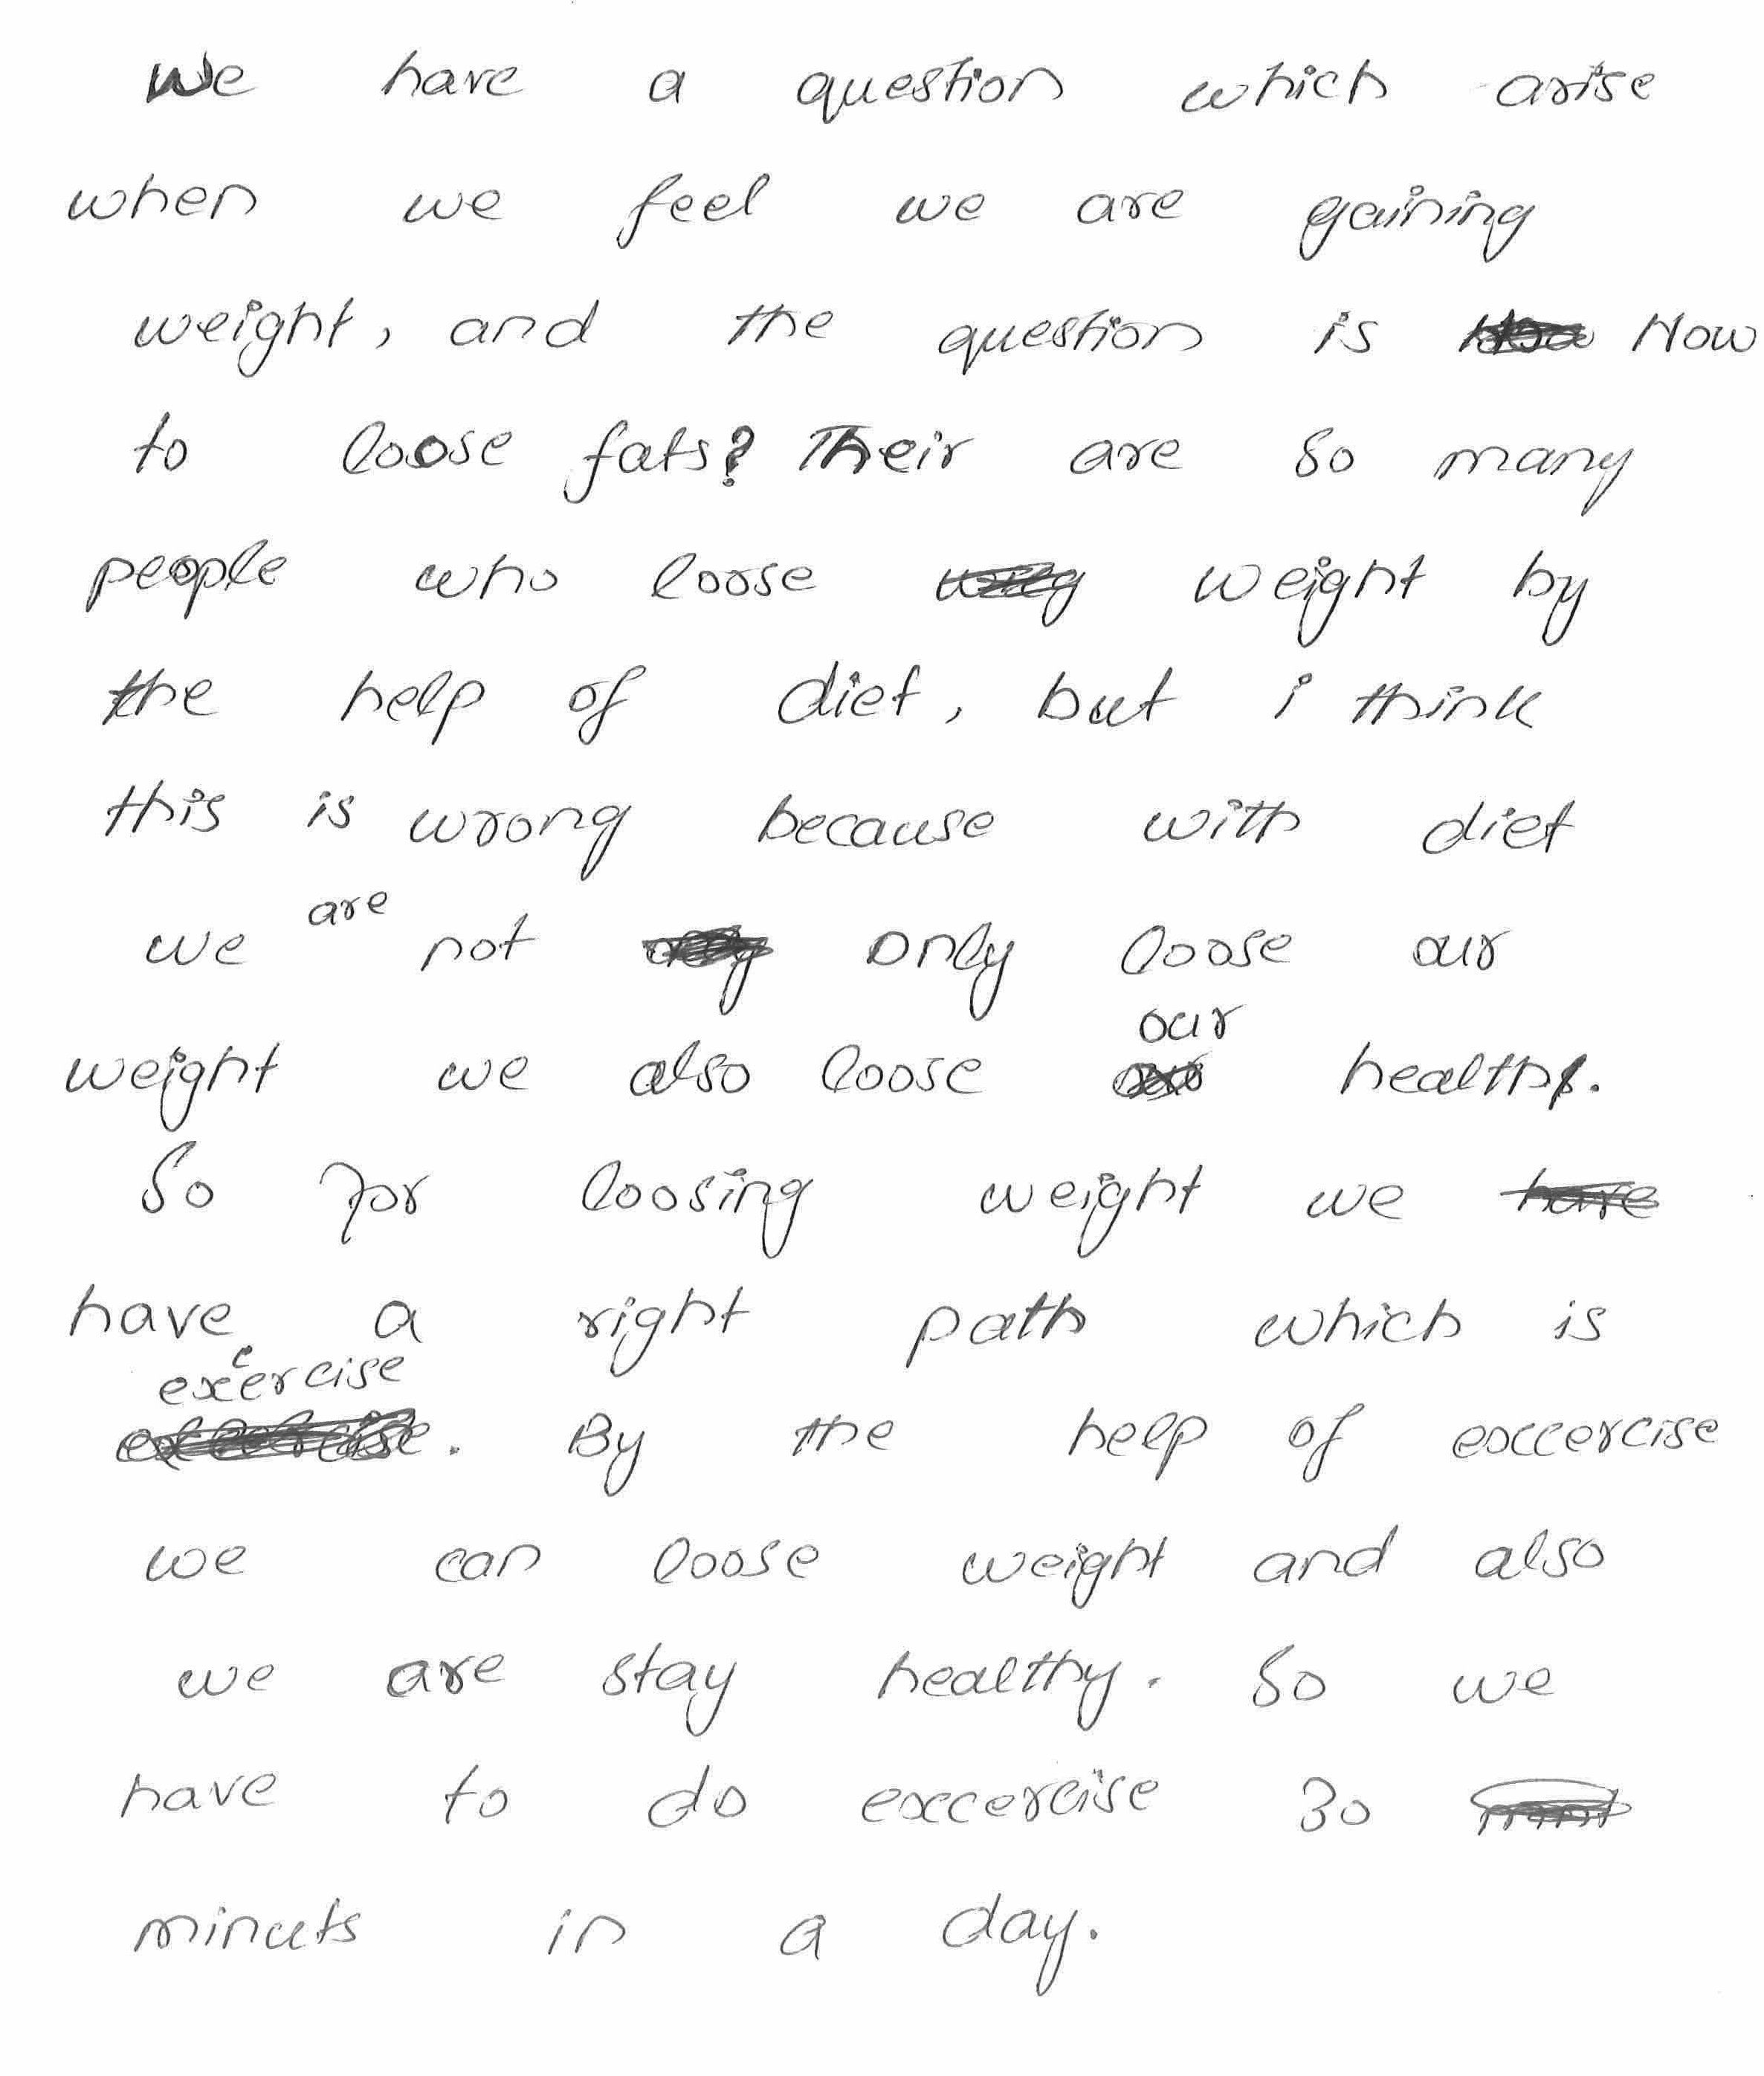 We have a question which arise
when we feel we are gaining
weight, and the question is How
to loose fats? Their are so many
people who loose weight by
the help of diet, but i think
this is wrong because with diet
we are not only loose our
weight we also loose our health.
So for loosing weight we
have a right path which is
excercise. By the help of excercise
we can loose weight and also
we are stay healthy. So we
have to do excercise 30
minuts in a day.